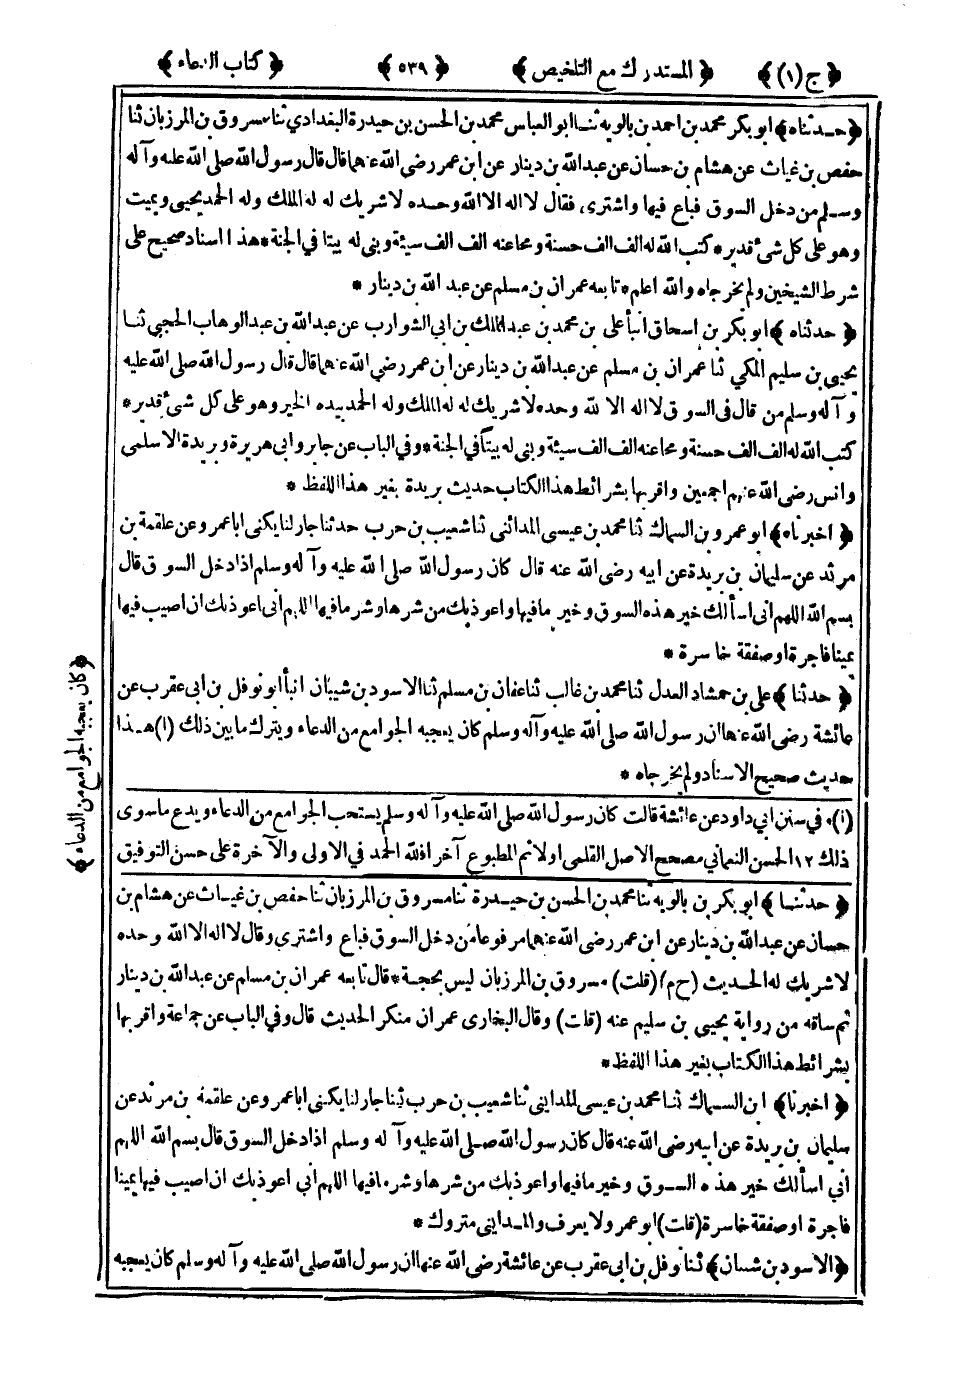 ﴿ ج (١) ﴾ ﴿ المستدرك مع التلخيص ﴾ ﴿ ٥٣٩ ﴾ ﴿ كتاب الدعاء ﴾
﴿ حدثناه ﴾ ابو بكر محمد بن احمد بن بالويه ثنا ابو العباس محمد بن الحسن بن حيدرة البغدادي ثنا مسروق بن المرزبان ثنا
حفص بن غياث عن هشام بن حسان عن عبدالله بن دينار عن ابن عمر رضى الله عنهما قال قال رسول الله صلى الله عليه وآله
وسلم من دخل السوق فباع فيها واشترى فقال لا اله الا الله وحده لا شريك له له الملك وله الحمد يحيى ويميت
وهو على كل شئ قدير * كتب الله له الف الف حسنة ومحا عنه الف الف سيئة وبنى له بيتا في الجنة * هذا اسناد صحيح على
شرط الشيخين ولم يخرجاه والله اعلم * تابعه عمران بن مسلم عن عبد الله بن دينار *
﴿ حدثناه ﴾ ابو بكر بن اسحاق انبأ على بن محمد بن عبدالملك بن ابي الشوارب عن عبدالله بن عبدالوهاب الحجبي ثنا
يحيى بن سليم المكي ثنا عمران بن مسلم عن عبدالله بن دينار عن ابن عمر رضي الله عنهما قال قال رسول الله صلى الله عليه
وآله وسلم من قال فى السوق لا اله الا لله وحده لا شريك له له الملك وله الحمد بيده الخير وهو على كل شئ قدير *
كتب الله له الف الف حسنة ومحا عنه الف الف سيئة وبنى له بيتاً في الجنة * وفي الباب عن جابر وابي هريرة وبريدة الاسلمى
وانس رضى الله عنهم اجمعين واقربها بشرائط هذا الكتاب حديث بريدة بغير هذا اللفظ *
﴿ اخبرناه ﴾ ابو عمرو بن السماك ثنا محمد بن عيسى المدائنى ثنا شعيب بن حرب حدثنا جار لنا يكنى ابا عمرو عن علقمة بن
مرثد عن سليمان بن بريدة عن ابيه رضى الله عنه قال كان رسول الله صلى الله عليه وآله وسلم اذا دخل السوق قال
بسم الله اللهم انى اسألك خير هذه السوق وخير ما فيها واعوذ بك من شرها وشر ما فيها اللهم انى اعوذ بك ان اصيب فيها
يمينا فاجرة او صفقة خاسرة *
﴿ حدثنا ﴾ على بن حمشاد العدل ثنا محمد بن غالب ثنا عفان بن مسلم ثنا الاسود بن شيبان انبأ ابو نوفل بن ابى عقرب عن
عائشة رضى الله عنها ان رسول الله صلى الله عليه وآله وسلم كان يعجبه الجوامع من الدعاء ويترك ما بين ذلك (١) هذا
حديث صحيح الاسناد ولم يخرجاه *
﴿ كان يعجبه الجوامع من الدعاء ﴾
(١) في سنن ابي داود عن عائشة قالت كان رسول الله صلى الله عليه وآله وسلم يستحب الجوامع من الدعاء ويدع ما سوى
ذلك ١٢ الحسن النعماني مصحح الاصل القلمى اولا ثم المطبوع آخرا فلله الحمد في الاولى والآخرة على حسن التوفيق
﴿ حدثنا ﴾ ابو بكر بن بالويه ثنا محمد بن الحسن بن حيدرة ثنا مسروق بن المرزبان ثنا حفص بن غياث عن هشام بن
حسان عن عبدالله بن دينار عن ابن عمر رضى الله عنهما مرفوعا من دخل السوق فباع واشترى وقال لا اله الا الله وحده
لا شريك له الحديث (خ م) (قلت) مسروق بن المرزبان ليس بحجة * قال تابعه عمران بن مسلم عن عبدالله بن دينار
ثم ساقه من رواية يحيى بن سليم عنه (قلت) وقال البخارى عمران منكر الحديث قال وفي الباب عن جماعة واقربها
بشرائط هذا الكتاب بغير هذا اللفظ *
﴿ اخبرنا ﴾ ابن السماك ثنا محمد بن عيسى المدايني ثنا شعيب بن حرب ثنا جار لنا يكنى ابا عمرو عن علقمة بن مرثد عن
سليمان بن بريدة عن ابيه رضى الله عنه قال كان رسول الله صلى الله عليه وآله وسلم اذا دخل السوق قال بسم الله اللهم
أنى اسألك خير هذه السوق وخير ما فيها واعوذ بك من شرها وشر ما فيها اللهم انى اعوذ بك ان اصيب فيها يمينا
فاجرة او صفقة خاسرة (قلت) ابو عمر ولا يعرف والمدايني متروك *
﴿ الاسود بن شيبان ﴾ ثنا نوفل بن ابى عقرب عن عائشة رضى الله عنها ان رسول الله صلى الله عليه وآله وسلم كان يعجبه